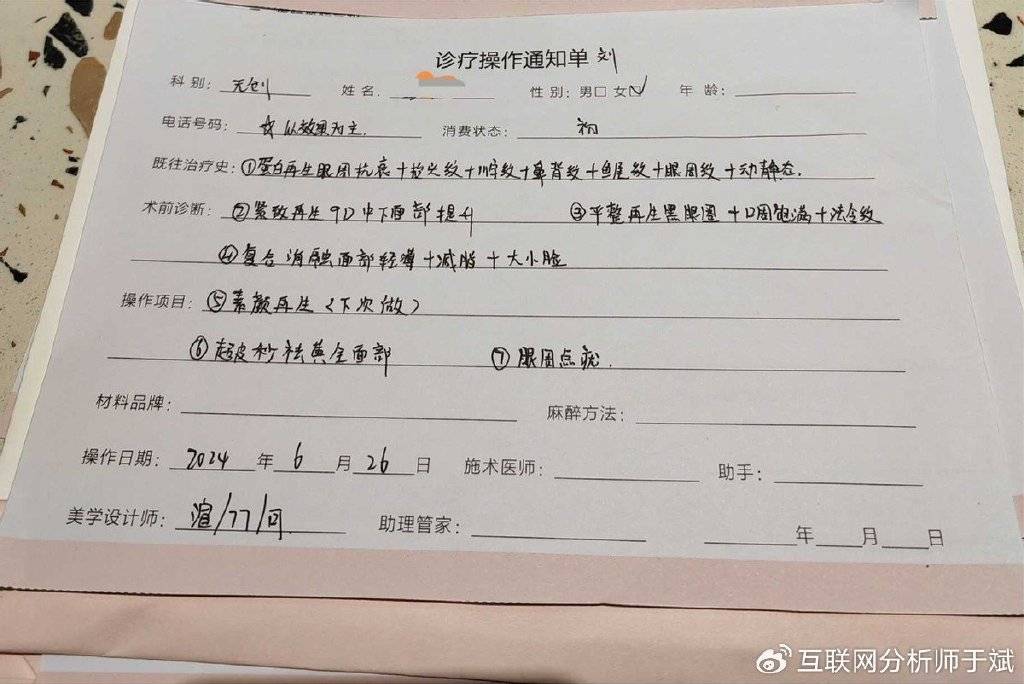 诊疗操作通知单 刘
科别: 无创 姓名. 性别: 男□ 女☑ 年龄:
电话号码: 以效果为主. 消费状态: 初
既往治疗史: ①蛋白再生眼周抗衰+抬头纹+川字纹+鼻背纹+鱼尾纹+眼周纹+动静态.
术前诊断: ②紧致再生9D中下面部提升 ③平整再生黑眼圈+口周饱满+法令纹
④复合消融面部轻薄+减脂+大小脸
操作项目: ⑤素颜再生(下次做)
⑥超皮秒祛黄全面部 ⑦眼周点疣.
材料品牌: 麻醉方法:
操作日期: 2024 年 6 月 26 日 施术医师: 助手:
美学设计师: 渲/77/回 助理管家: 年 月 日
互联网分析师于斌